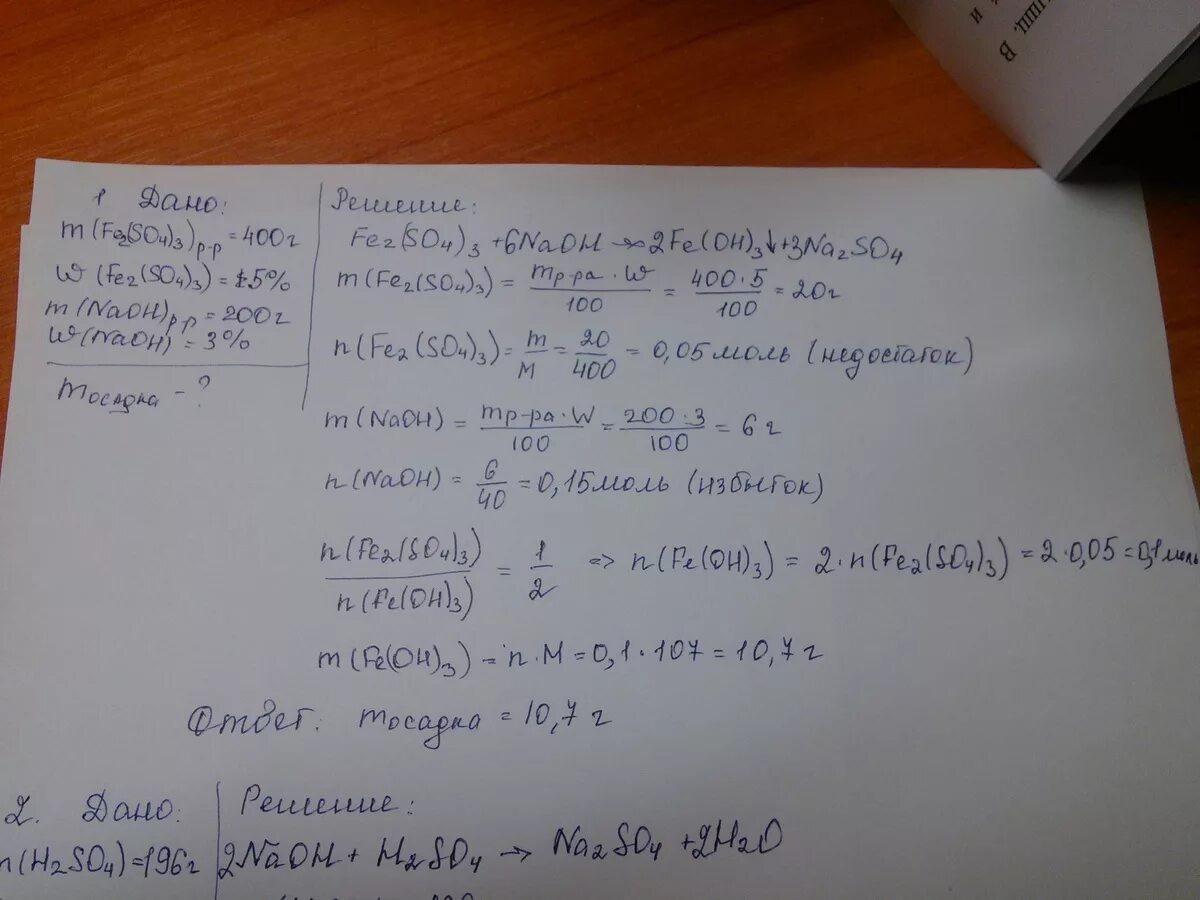 1 Дано:
m(Fe2(SO4)3)р-р = 400г
W(Fe2(SO4)3) = 5%
m(NaOH)р-р = 200г
W(NaOH) = 3%
mосадка - ?
Решение:
Fe2(SO4)3 + 6NaOH → 2Fe(OH)3↓ + 3Na2SO4
m(Fe2(SO4)3) = mр-ра · W / 100 = 400·5 / 100 = 20г
n(Fe2(SO4)3) = m/M = 20/400 = 0,05моль (недостаток)
m(NaOH) = mр-ра·W / 100 = 200·3 / 100 = 6г
n(NaOH) = 6/40 = 0,15моль (избыток)
n(Fe2(SO4)3) / n(Fe(OH)3) = 1/2 => n(Fe(OH)3) = 2·n(Fe2(SO4)3) = 2·0,05 = 0,1моль
m(Fe(OH)3) = n·M = 0,1·107 = 10,7г
Ответ: mосадка = 10,7г
2. Дано:
m(H2SO4)=196г
Решение:
2NaOH + H2SO4 → Na2SO4 + 2H2O
В
и